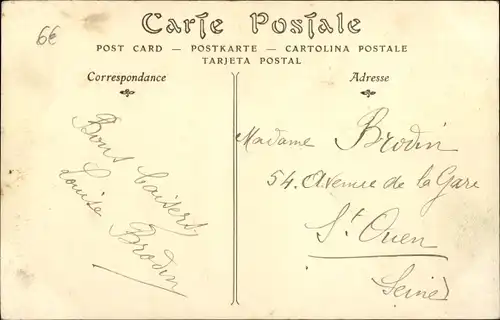 6€
Carte Postale
POST CARD — POSTKARTE — CARTOLINA POSTALE
TARJETA POSTAL
Correspondance
Bons baisers
Louise Brodin
Adresse
Madame Brodin
54. Avenue de la Gare
St Ouen
Seine